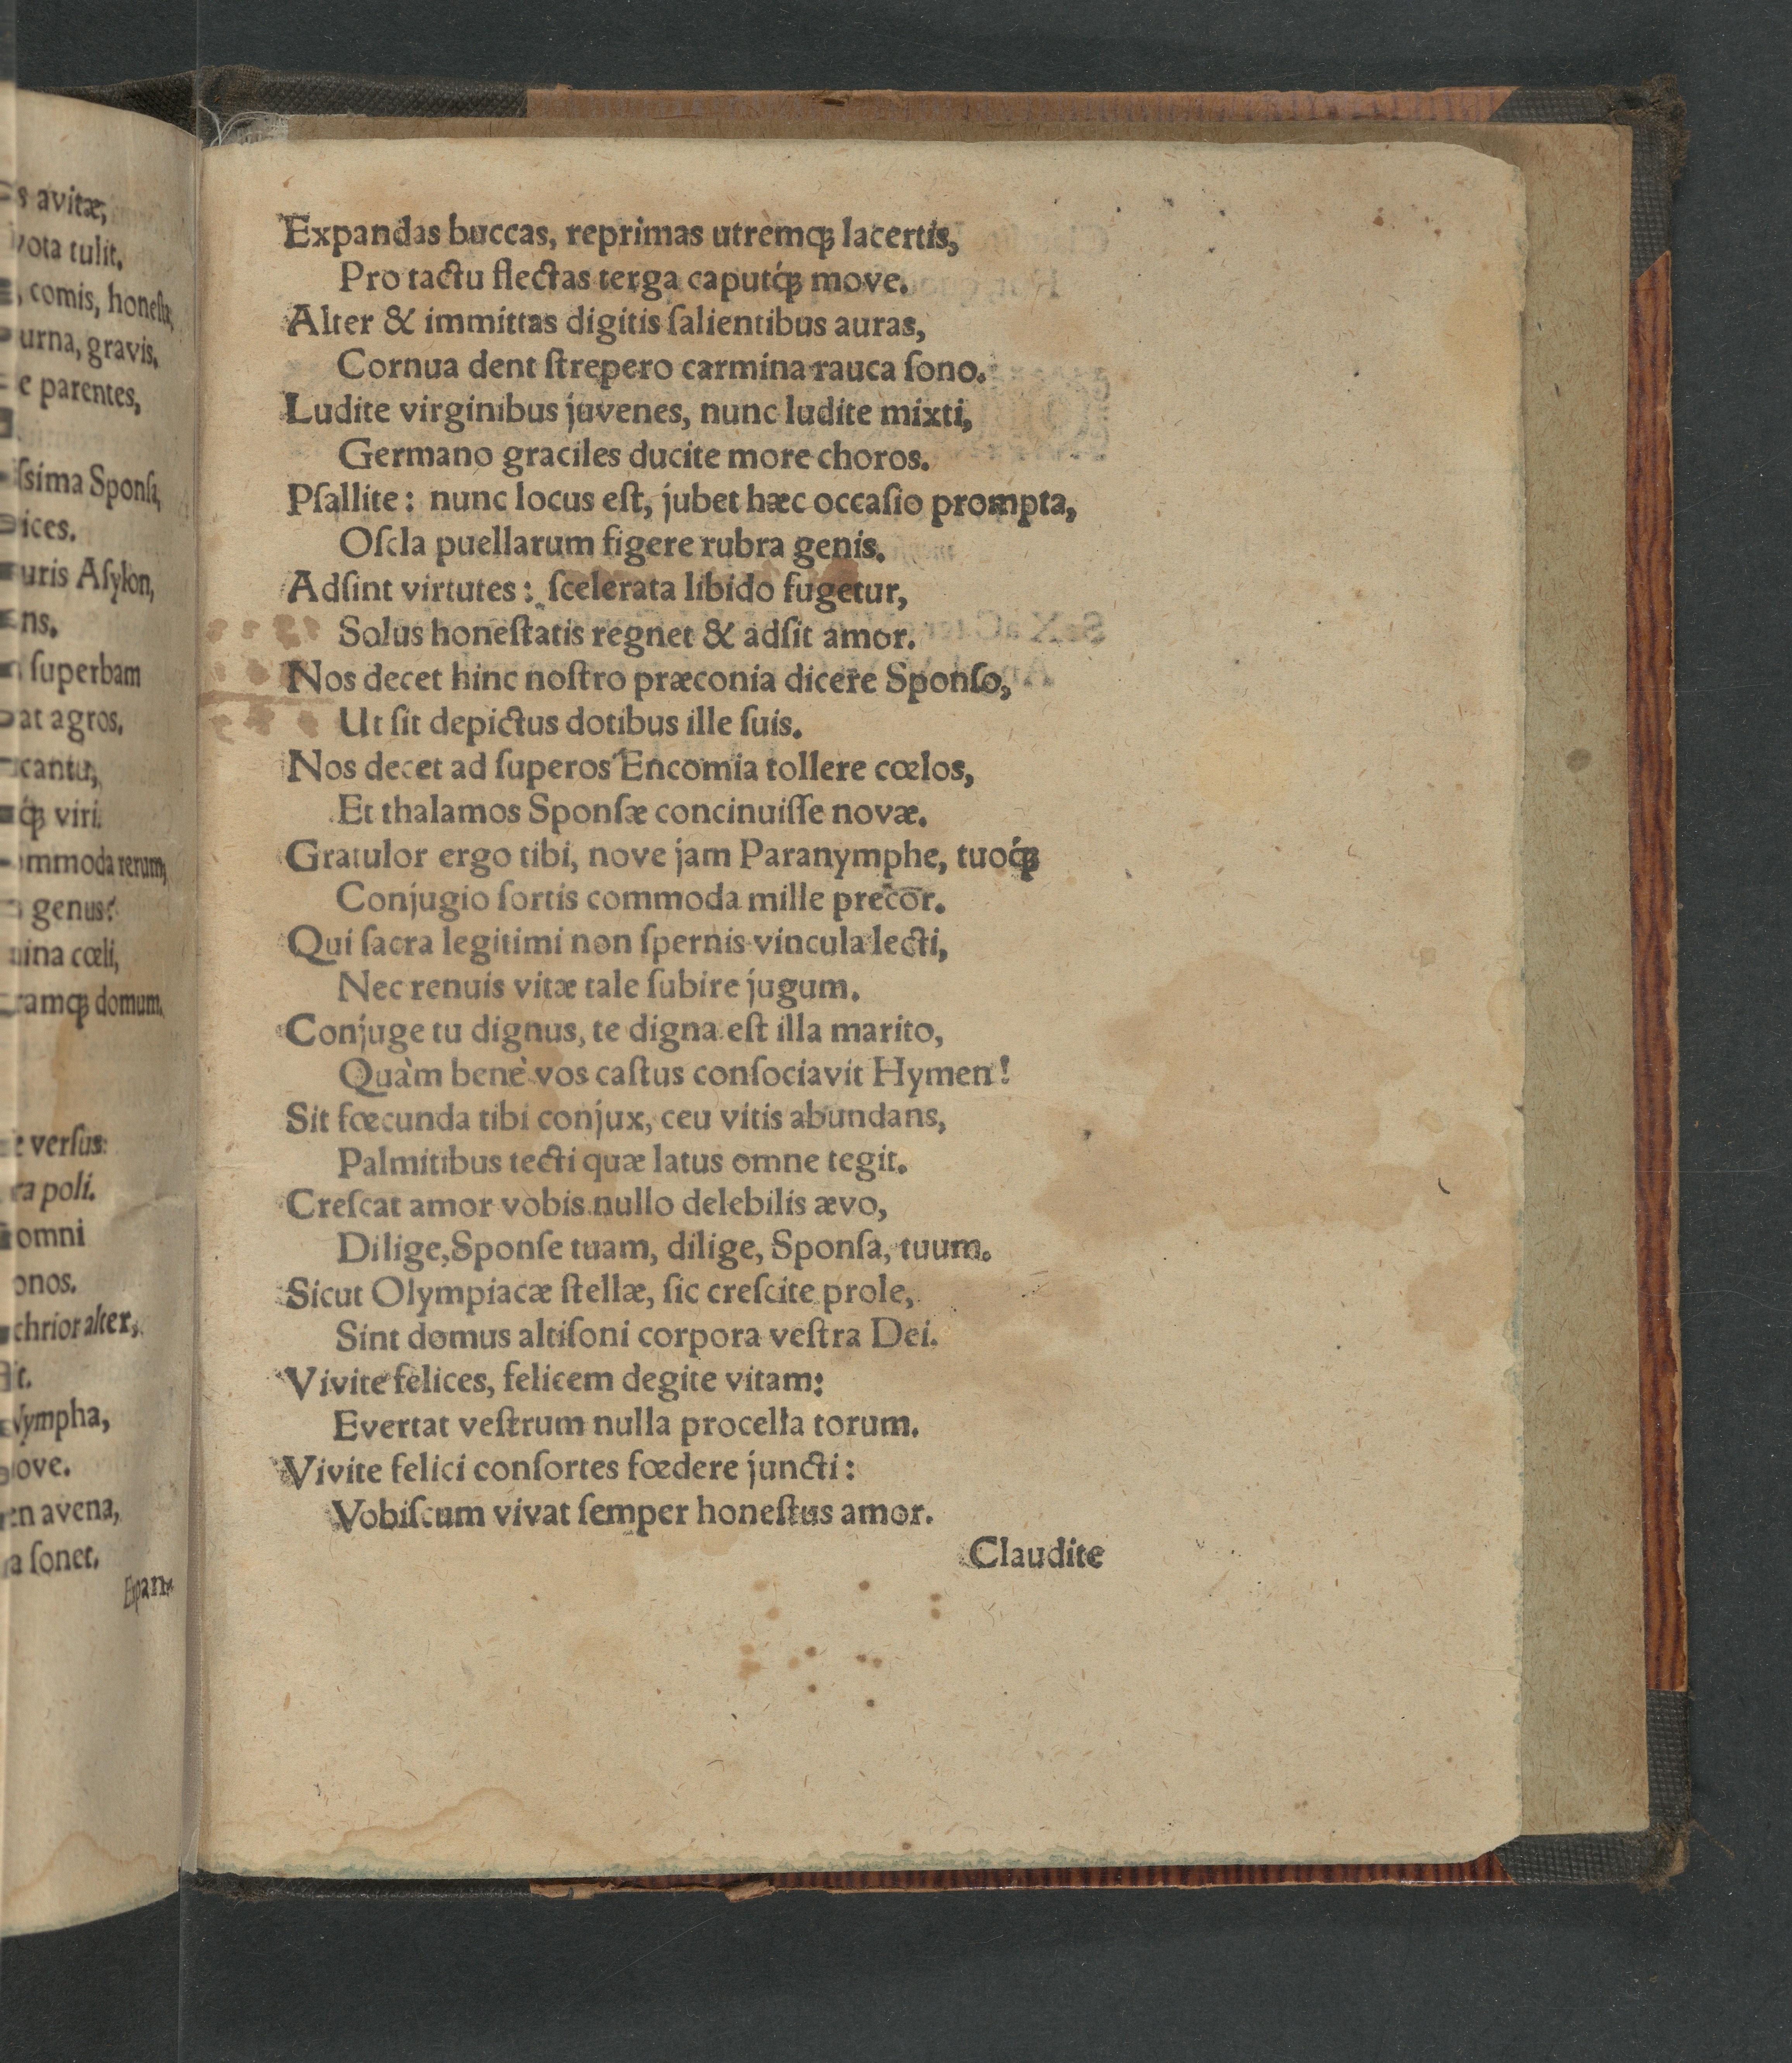 s avitæ,
vota tulit.
, comis, honeſta,
urna, gravis,
e parentes,
ſsima Sponſa,
ices.
uris Aſylon,
ns.
ſuperbam
at agros.
cantu,
q́ꝫ viri.
ommoda rerum,
genus?
mina cœli,
ramqꝫ domum.
e verſus:
ra poli.
omni
onos.
chrior alter,
it.
Nympha,
ove.
en avena,
a ſonet.
Expandas buccas, reprimas utrèmqꝫ lacertis,
Pro tactu flectas terga caputq́ꝫ move.
Alter & immittas digitis ſalientibus auras,
Cornua dent ſtrepero carmina rauca ſono.
Ludite virginibus juvenes, nunc ludite mixti,
Germano graciles ducite more choros.
Pſallite: nunc locus eſt, jubet hæc occaſio prompta,
Oſcla puellarum figere rubra genis.
Adſint virtutes: ſcelerata libido fugetur,
Solus honeſtatis regnet & adſit amor.
Nos decet hinc noſtro præconia dicere Sponſo,
Ut ſit depictus dotibus ille ſuis.
Nos decet ad ſuperos Encomia tollere cœlos,
Et thalamos Sponſæ concinuiſſe novæ.
Gratulor ergo tibi, nove jam Paranymphe, tuoq́ꝫ
Conjugio ſortis commoda mille precor.
Qui ſacra legitimi non ſpernis vincula lecti,
Nec renuis vitæ tale ſubire jugum.
Conjuge tu dignus, te digna eſt illa marito,
Quàm benè vos caſtus conſociavit Hymen!
Sit fœcunda tibi conjux, ceu vitis abundans,
Palmitibus tecti quæ latus omne tegit.
Creſcat amor vobis nullo delebilis ævo,
Dilige, Sponſe tuam, dilige, Sponſa, tuum.
Sicut Olympiacæ ſtellæ, ſic creſcite prole,
Sint domus altiſoni corpora veſtra Dei.
Vivite felices, felicem degite vitam:
Evertat veſtrum nulla procella torum.
Vivite felici conſortes fœdere juncti:
Vobiſcum vivat ſemper honeſtus amor.
Claudite